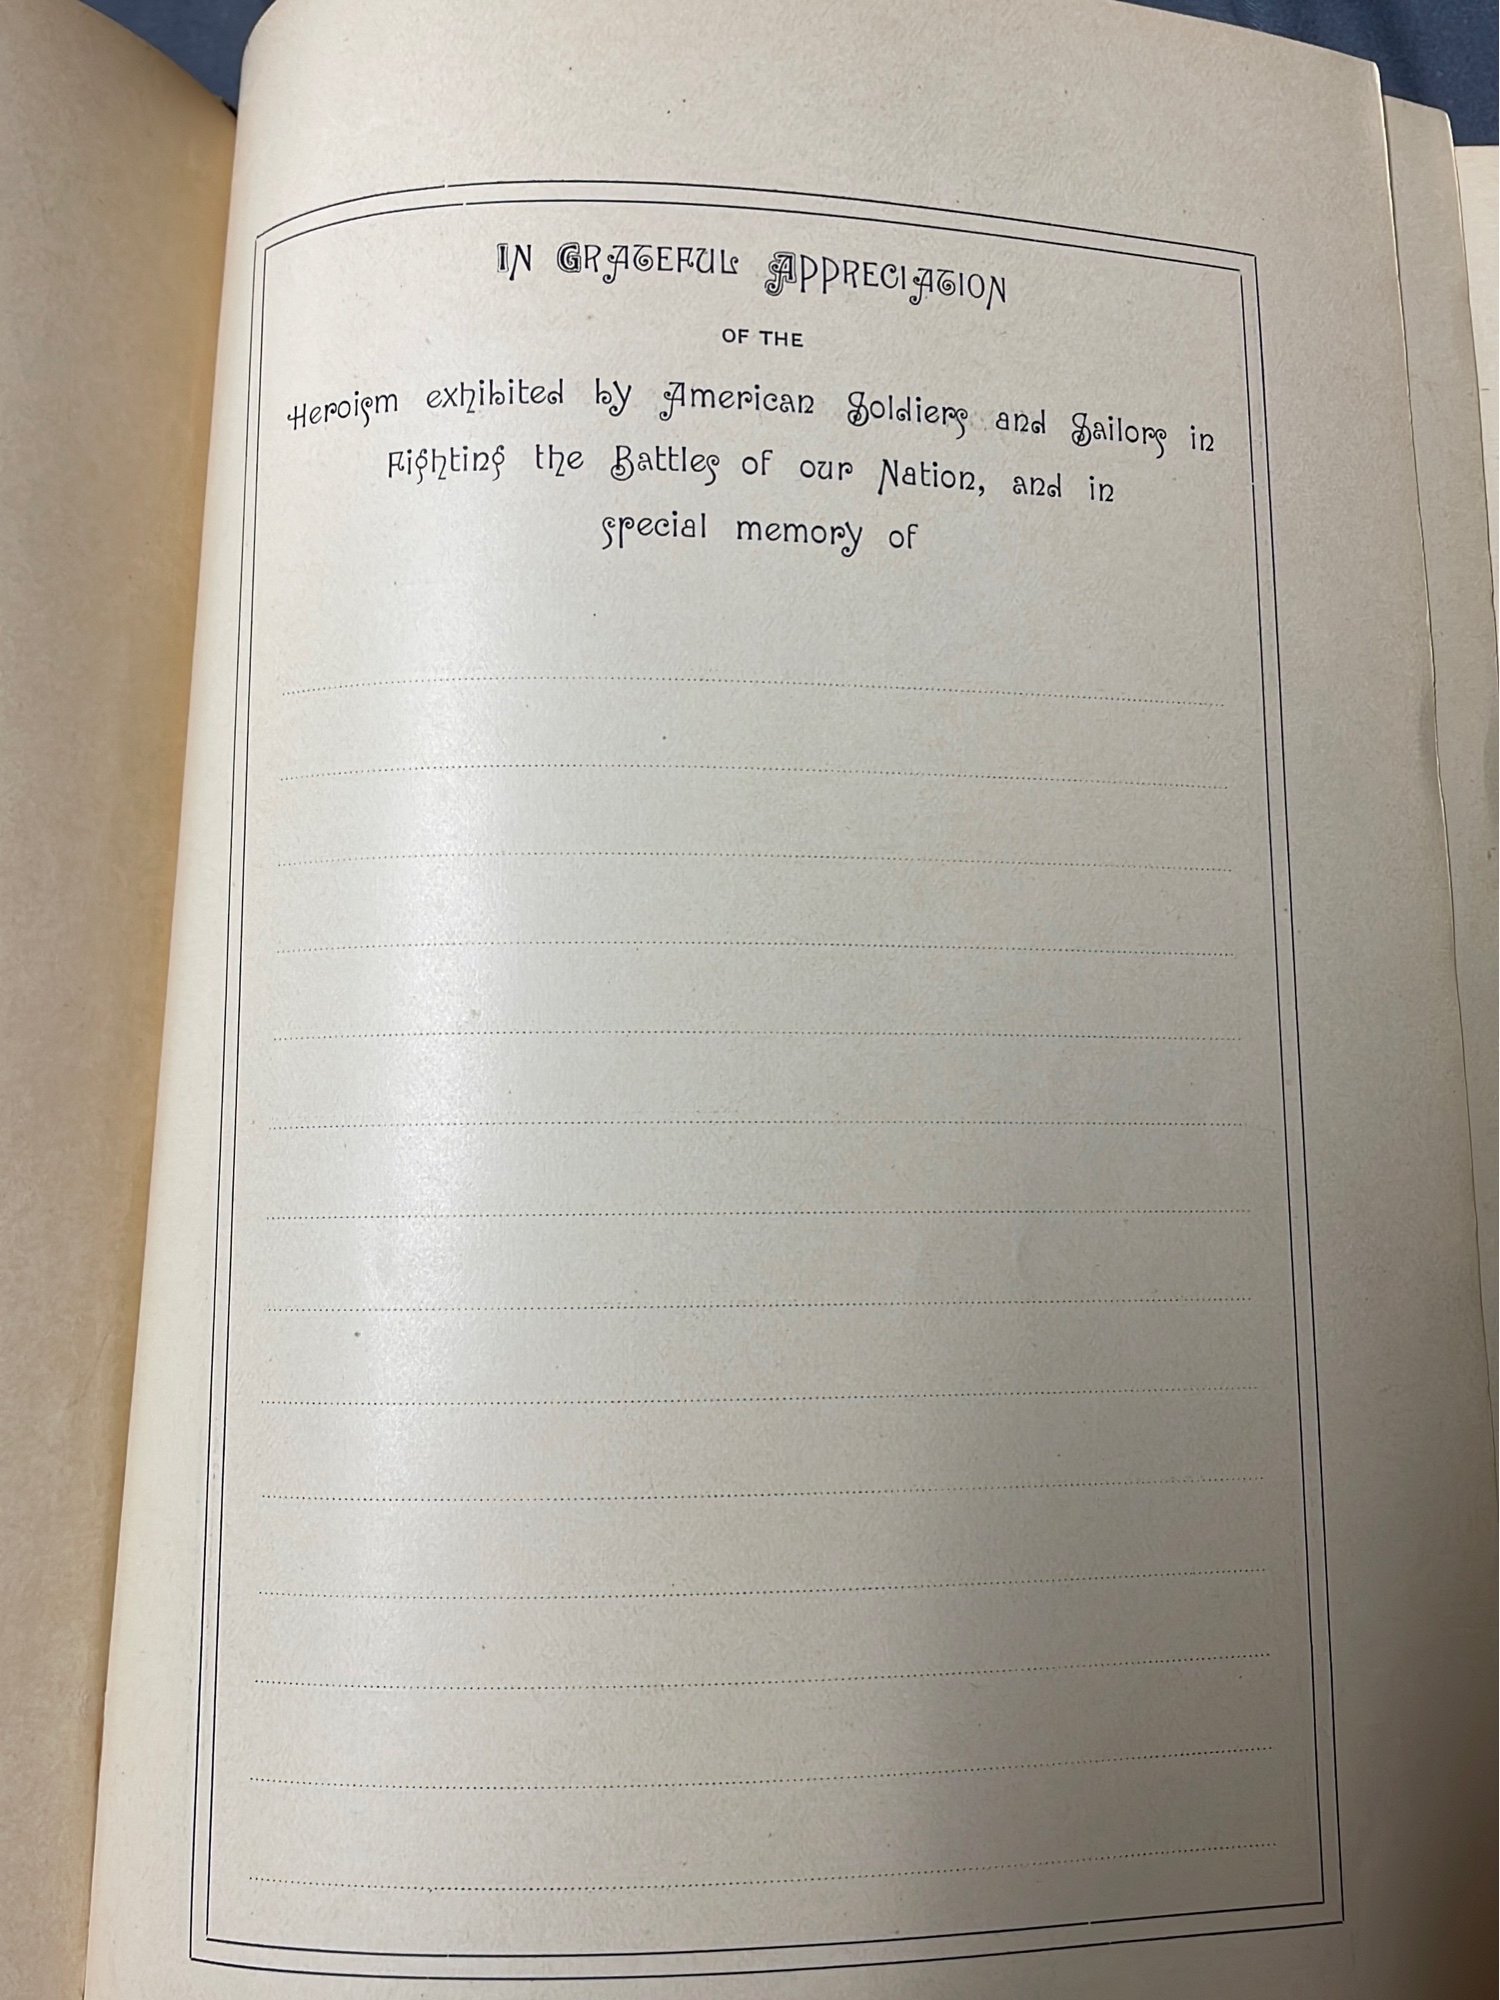 IN GRATEFUL APPRECIATION
OF THE
Heroism exhibited by American Soldiers and Sailors in
Fighting the Battles of our Nation, and in
special memory of